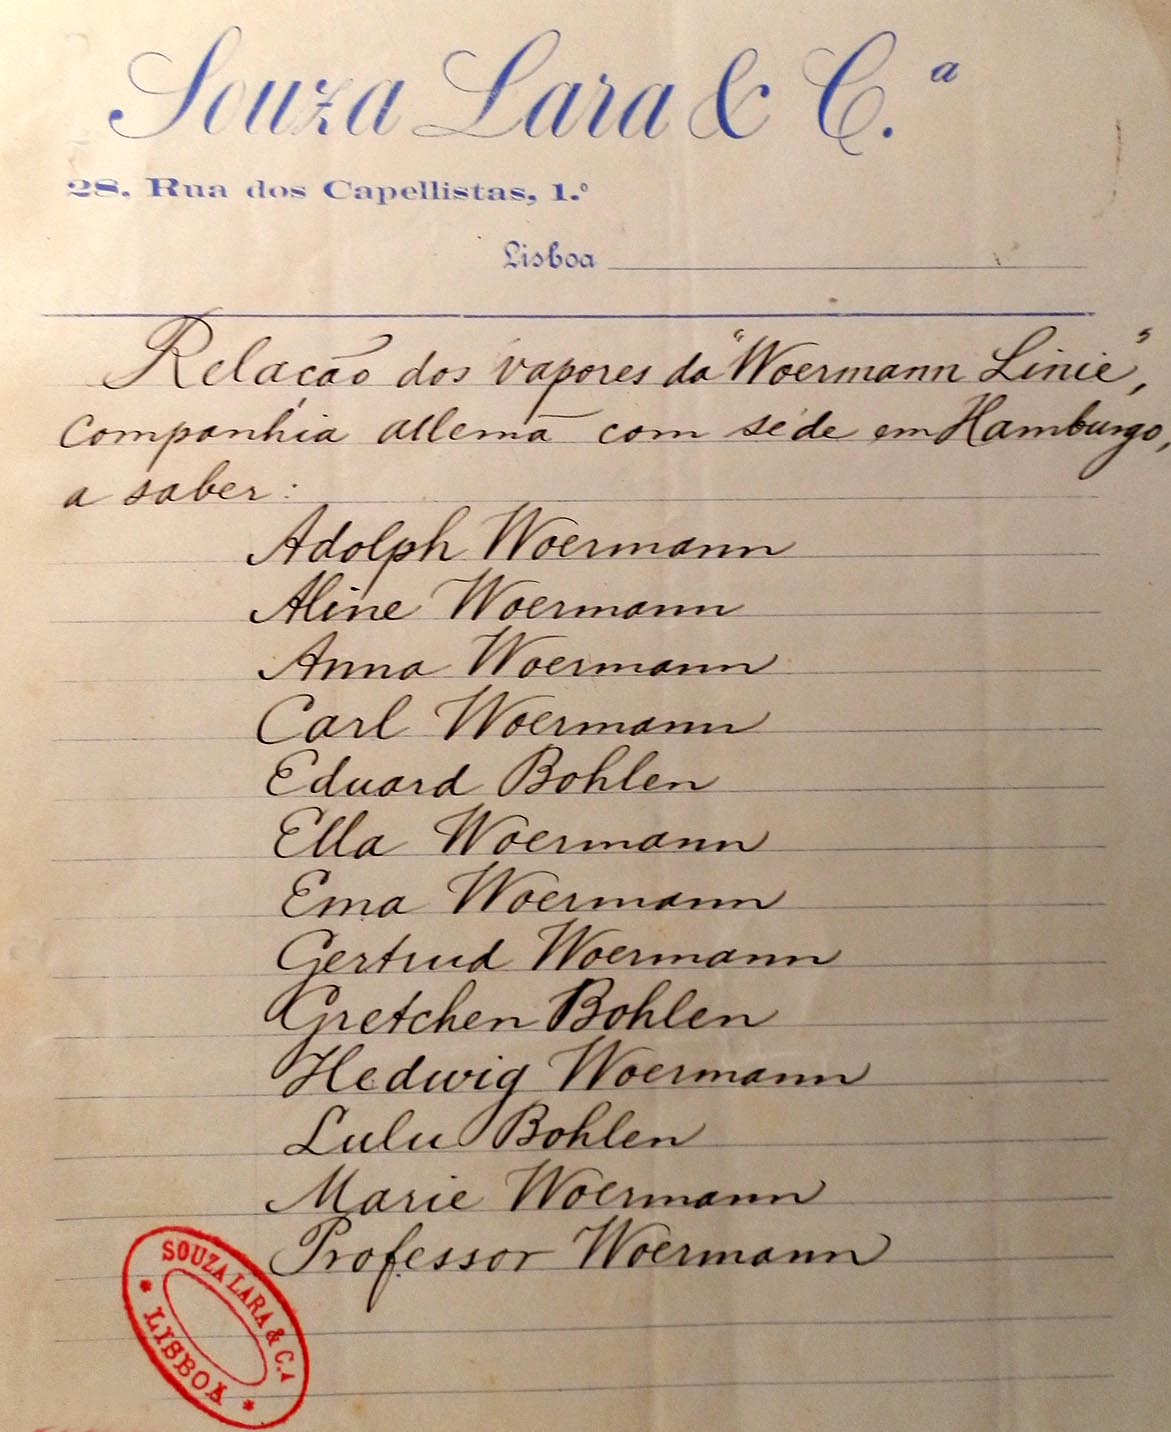 Souza Lara & C.ª
28, Rua dos Capellistas, 1.º
Lisboa
Relação dos vapores da "Woermann Linie",
companhia allemã com séde em Hamburgo,
a saber:
Adolph Woermann
Aline Woermann
Anna Woermann
Carl Woermann
Eduard Bohlen
Ella Woermann
Ema Woermann
Gertrud Woermann
Gretchen Bohlen
Hedwig Woermann
Lulu Bohlen
Marie Woermann
Professor Woermann
SOUZA LARA & C.ª
* LISBOA *